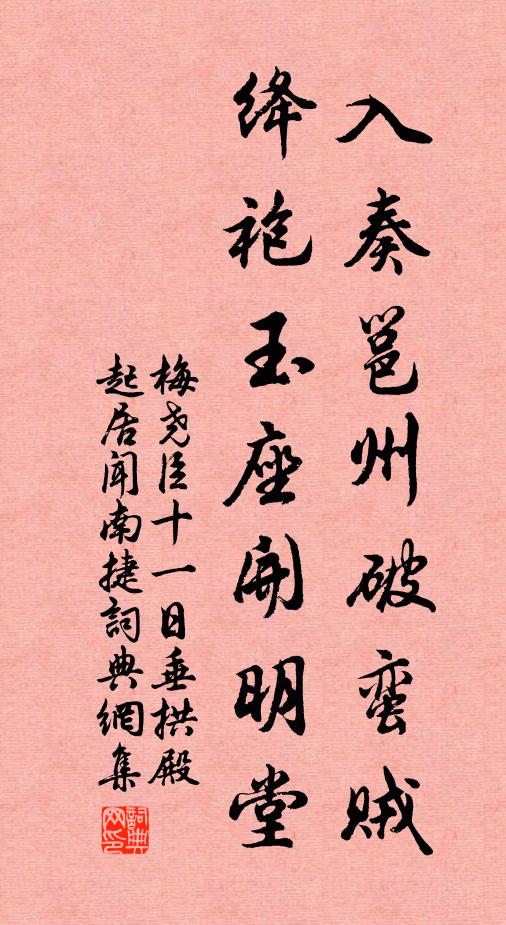 入奏邕州破蛮贼
绛袍玉座开明堂
梅尧臣十一日垂拱殿
起居闻南捷詞典網集
詞典网印